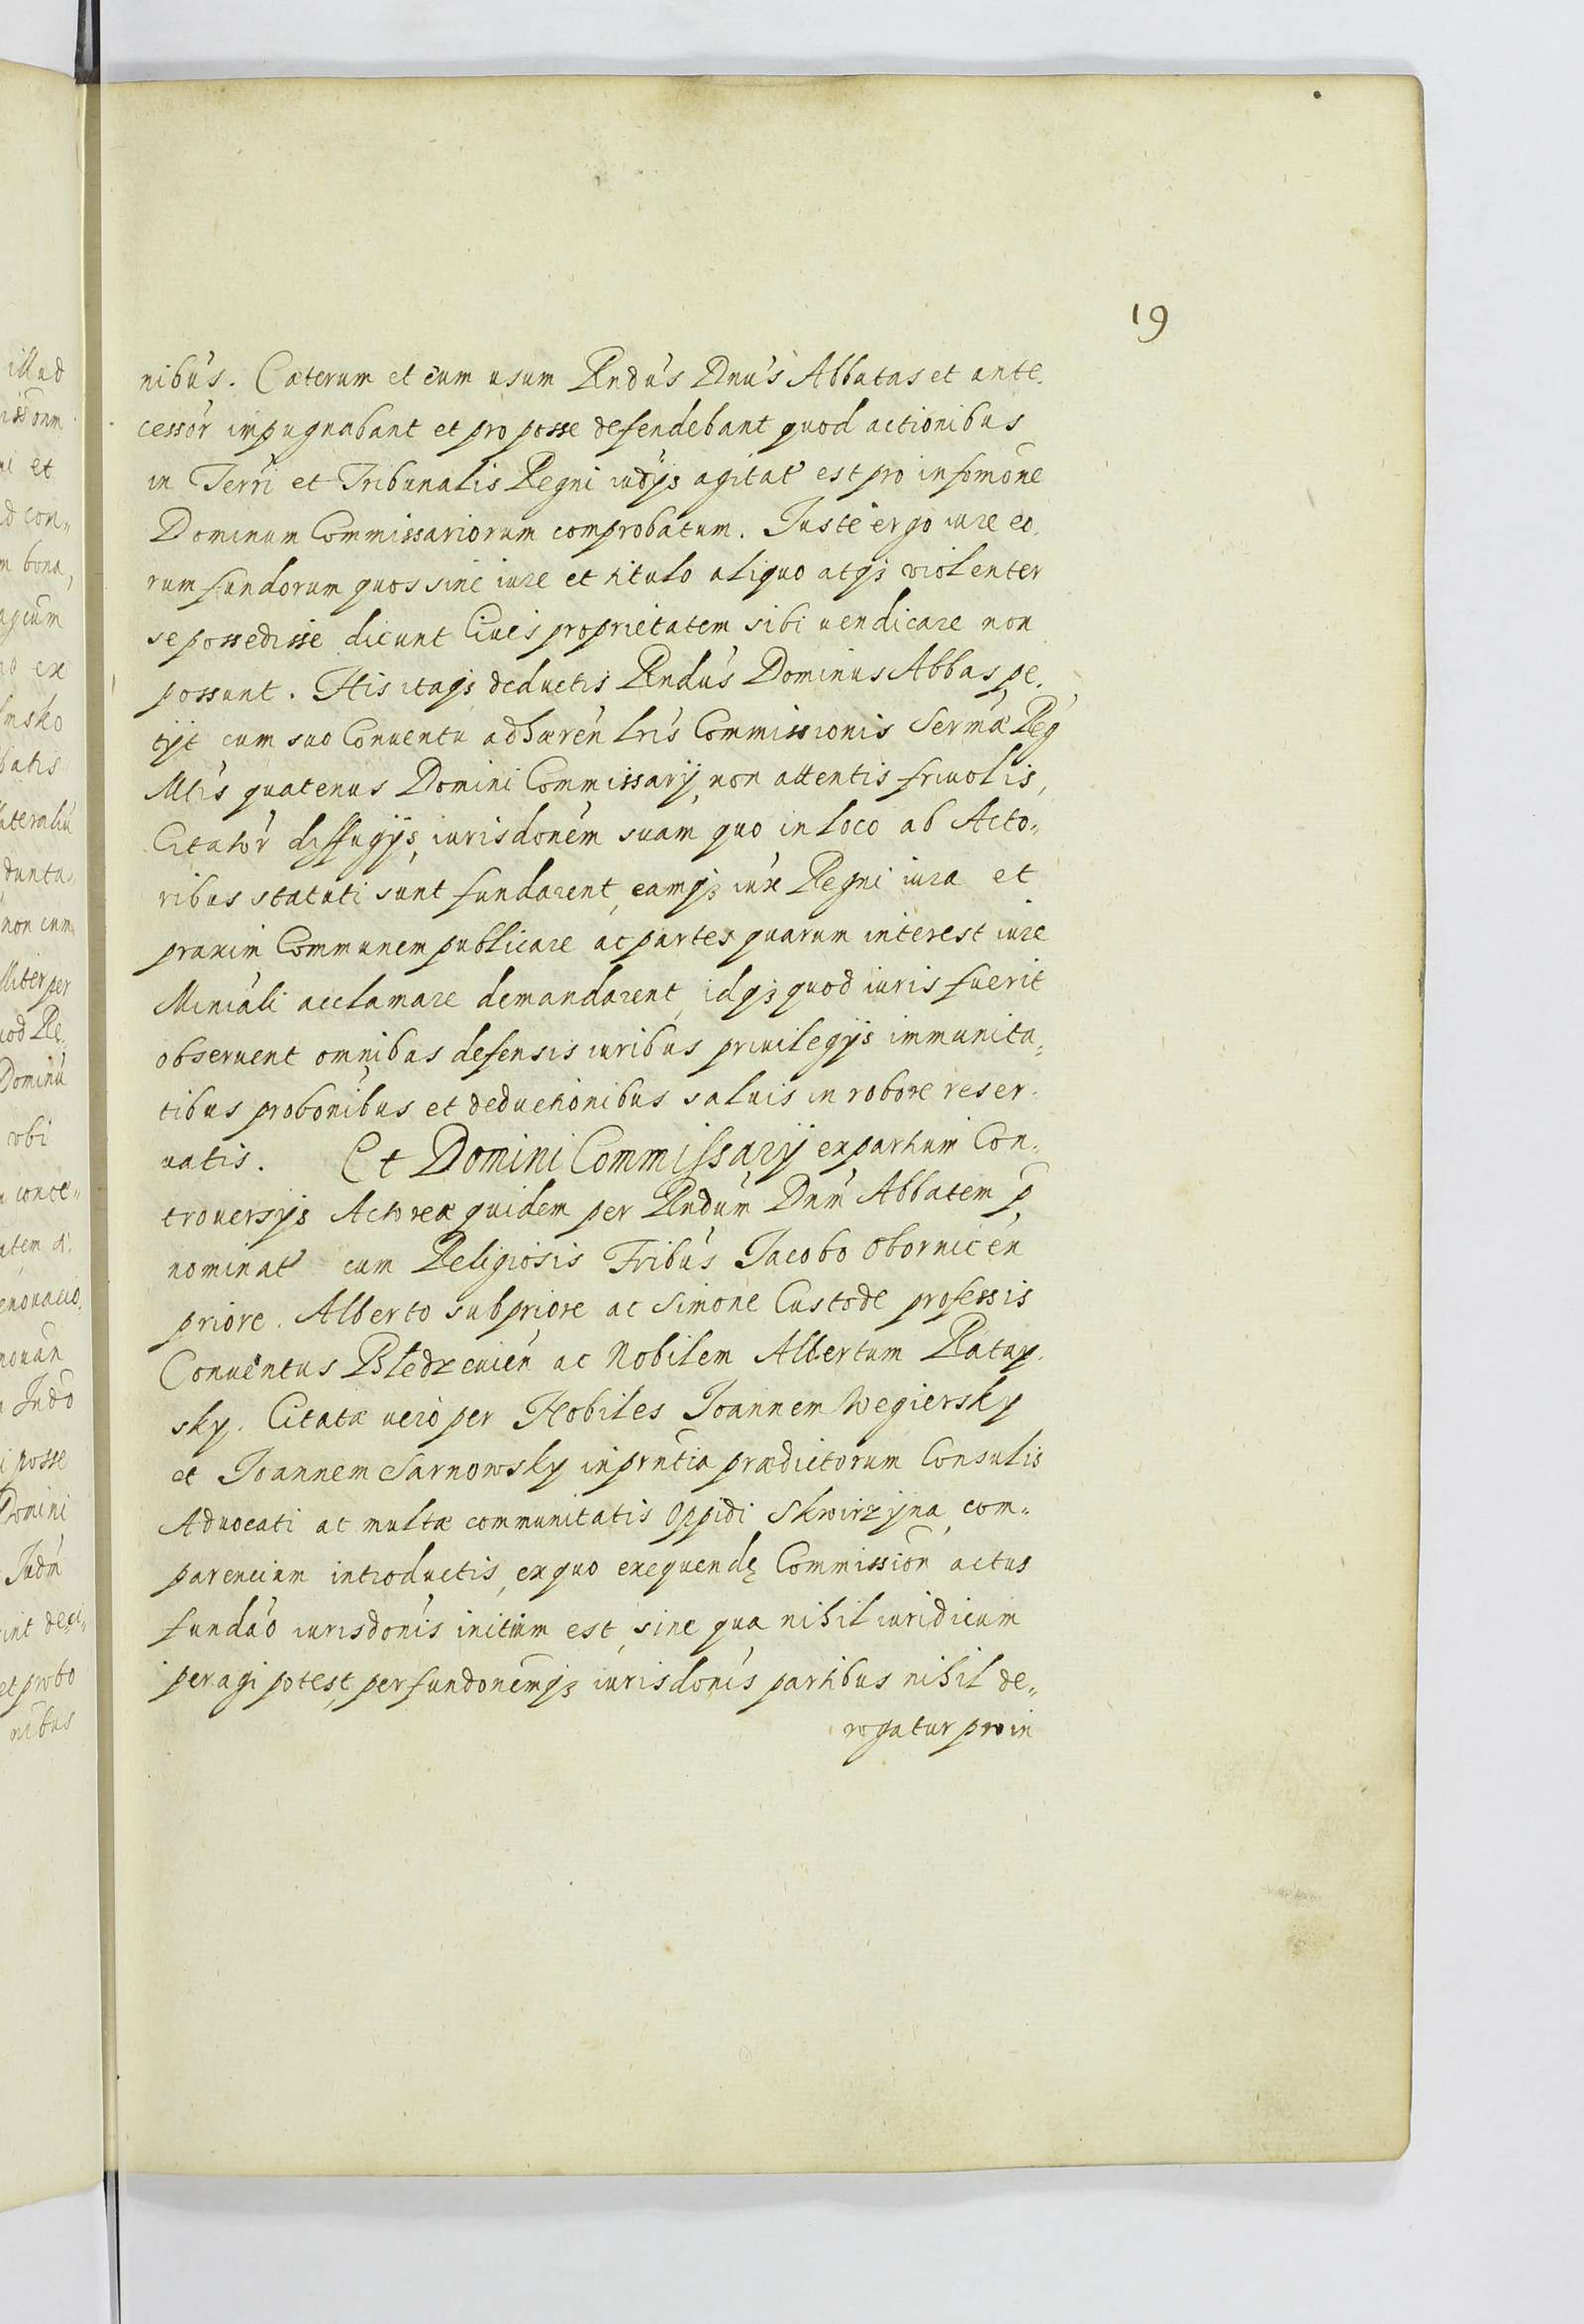 19
nibus. Cæterum et eum usum Rndus Dnus Abbatas et ante.
cessor impugnabant et pro posse defendebant quod actionibus
in Terri et Tribunalis Regni iudys agitat est pro infomone
Dominum Commissariorum comprobatum. Juste ergo iure eo.
rum fundorum quos sine iure et titulo aliquo atqз violenter
se possedisse dicunt Ciues proprietatem sibi uendicare non
possunt. His itaqз deductis Rndus Dominus Abbas pe.
tyt cum suo Conuentu adhæren lris Commissionis Sermæ Reg
Mtis quatenus Domini Commissarij, non attentis friuolis,
Citator diffugijs, iurisdonem suam quo in loco ab Acto„
ribus statuti sunt fundarent, eamqз iure Regni iura et
praxim Communem publicare ac partes quarum interest iure
Miniali acclamare demandarent, idqз quod iuris fuerit
obseruent omnibus defensis iuribus priuilegijs immunita„
tibus probonibus et deductionibus saluis in robore reser.
uatis. Et Domini Commissarij ex partium Con.
trouersijs Actoreæ quidem per Rndum Dnm Abbatem p
nominat cum Religiosis Fribus Jacobo Obornicen
priore. Alberto subpriore ac Simone Custode professis
Conuentus Bledzeuien ac Nobilem Albertum Ratay.
sky. Citatæ uero per Nobiles Joannem Wegiersky
et Joannem Sarnowsky in prntia prædictorum Consulis
Aduocati ac multæ communitatis Oppidi Skwirzyna com„
parencium introductis, ex quo exequendę Commission actus
fundao iurisdonis initium est, sine qua nihil iuridicum
peragi potest, per fundonemqз iurisdonis partibus nihil de„
rogatur proin
illud
ni et
d con„
m bona,
io ex
batis
dunta„
non cum
liter per
uod Re.
Dominu
vbi
conce„
atem
enouacio
nouan
Judo
i posse
Domini
Judm
int deci„
et probo
nibus